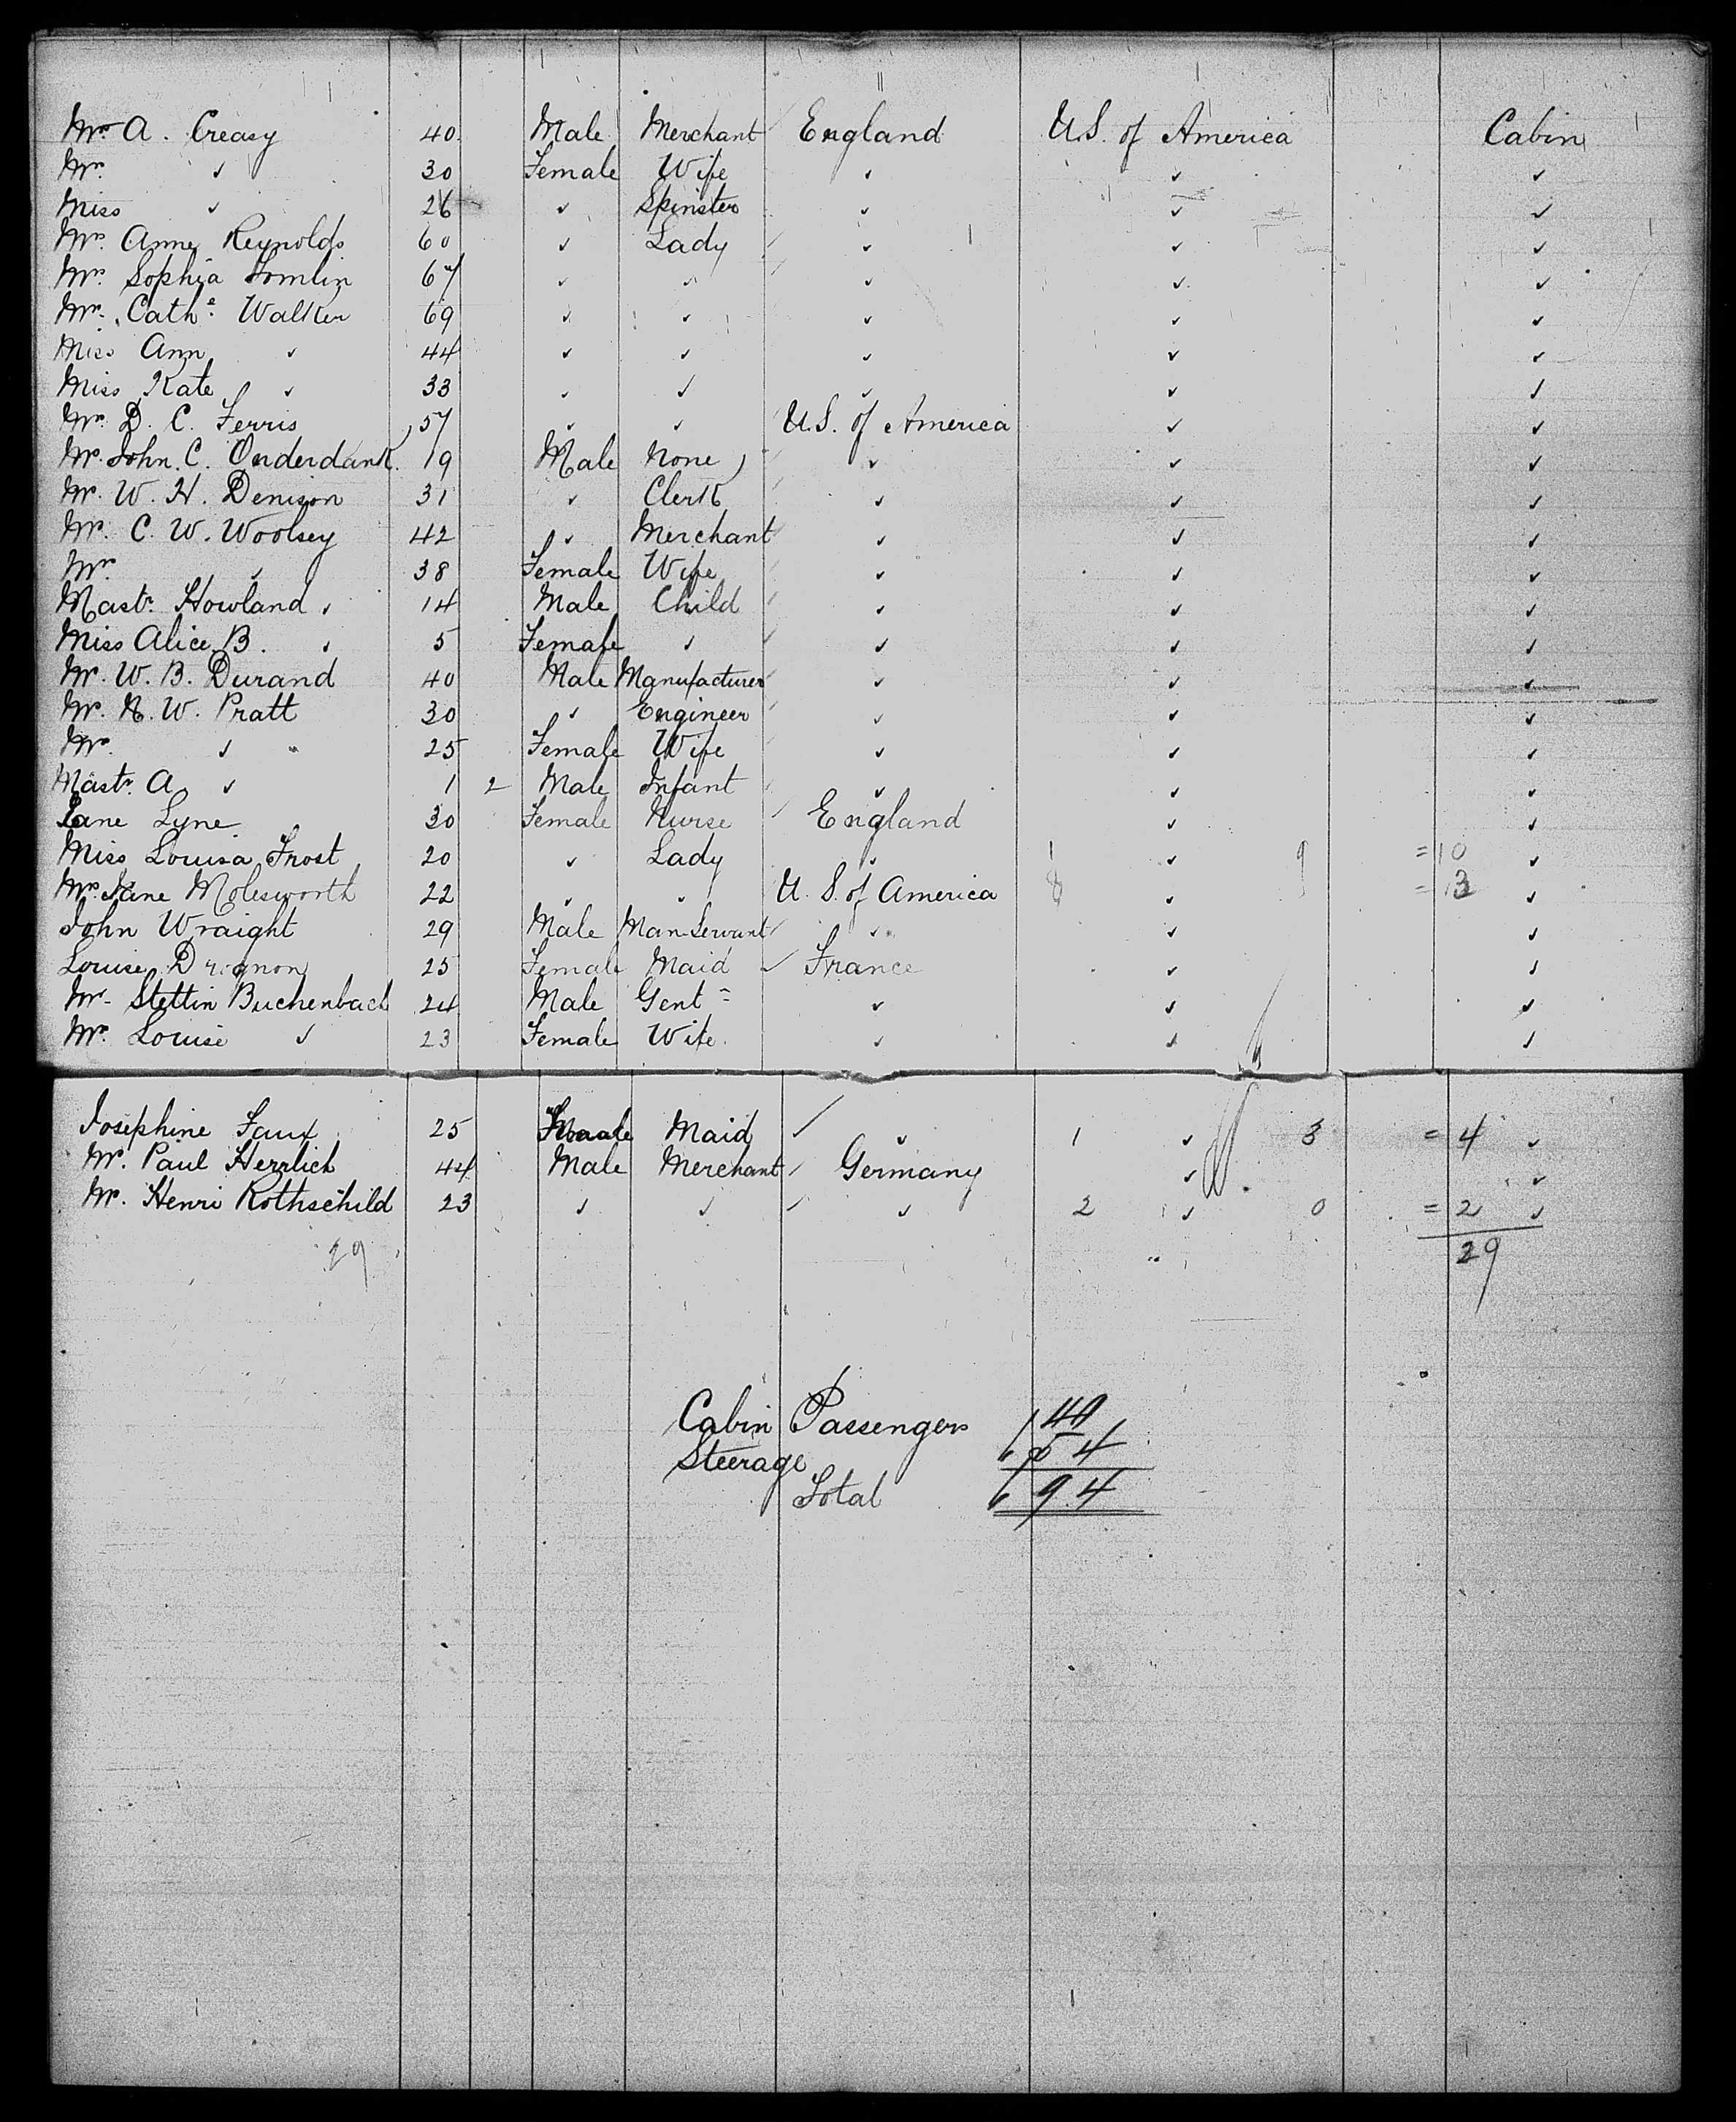 Mr. A. Creasy 40 Male Merchant England U.S. of America Cabin
Mrs. ✓ 30 Female Wife ✓ ✓ ✓
Miss ✓ 26 ✓ Spinster ✓ ✓ ✓
Mrs. Anne Reynolds 60 ✓ Lady ✓ ✓ ✓
Mrs. Sophia Tomlin 67 ✓ ✓ ✓ ✓ ✓
Mrs. Cathe. Walker 69 ✓ ✓ ✓ ✓ ✓
Miss Ann ✓ 44 ✓ ✓ ✓ ✓ ✓
Miss Kate ✓ 33 ✓ ✓ ✓ ✓ ✓
Mrs. D. C. Ferris 57 ✓ ✓ U.S. of America ✓ ✓
Mr. John. C. Onderdank. 19 Male None ✓ ✓ ✓
Mr. W. H. Denison 31 ✓ Clerk ✓ ✓ ✓
Mr. C. W. Woolsey 42 ✓ Merchant ✓ ✓ ✓
Mrs. ✓ 38 Female Wife ✓ ✓ ✓
Mastr. Howland ✓ 14 Male Child ✓ ✓ ✓
Miss Alice B. ✓ 5 Female ✓ ✓ ✓ ✓
Mr. W. B. Durand 40 Male Manufacturer ✓ ✓ ✓
Mr. N. W. Pratt 30 ✓ Engineer ✓ ✓ ✓
Mrs. ✓ " 25 Female Wife ✓ ✓ ✓
Mastr. A ✓ 1 2 Male Infant ✓ ✓ ✓
Jane Lyne 30 Female Nurse England ✓ ✓
Miss Louisa Frost 20 ✓ Lady ✓ 1 ✓ 9 =10 ✓
Mrs. Jane Molesworth 22 ✓ ✓ U.S. of America 8 ✓ = 13 ✓
John Wraight 29 Male Man-Servant ✓ ✓ ✓
Louise Drignon 25 Female Maid ✓ France ✓ ✓
Mr. Stettin Buchenbach 24 Male Gentn ✓ ✓ ✓
Mrs. Louise ✓ 23 Female Wife ✓ ✓ ✓
Josephine Faux 25 Female Maid ✓ ✓ 1 ✓ 3 = 4 ✓
Mr. Paul Herrlich 44 Male Merchant Germany ✓ ✓
Mr. Henri Rothschild 23 ✓ ✓ ✓ 2 ✓ 0 = 2 ✓
29 29
Cabin Passengers 40
Steerage 654
Total 694